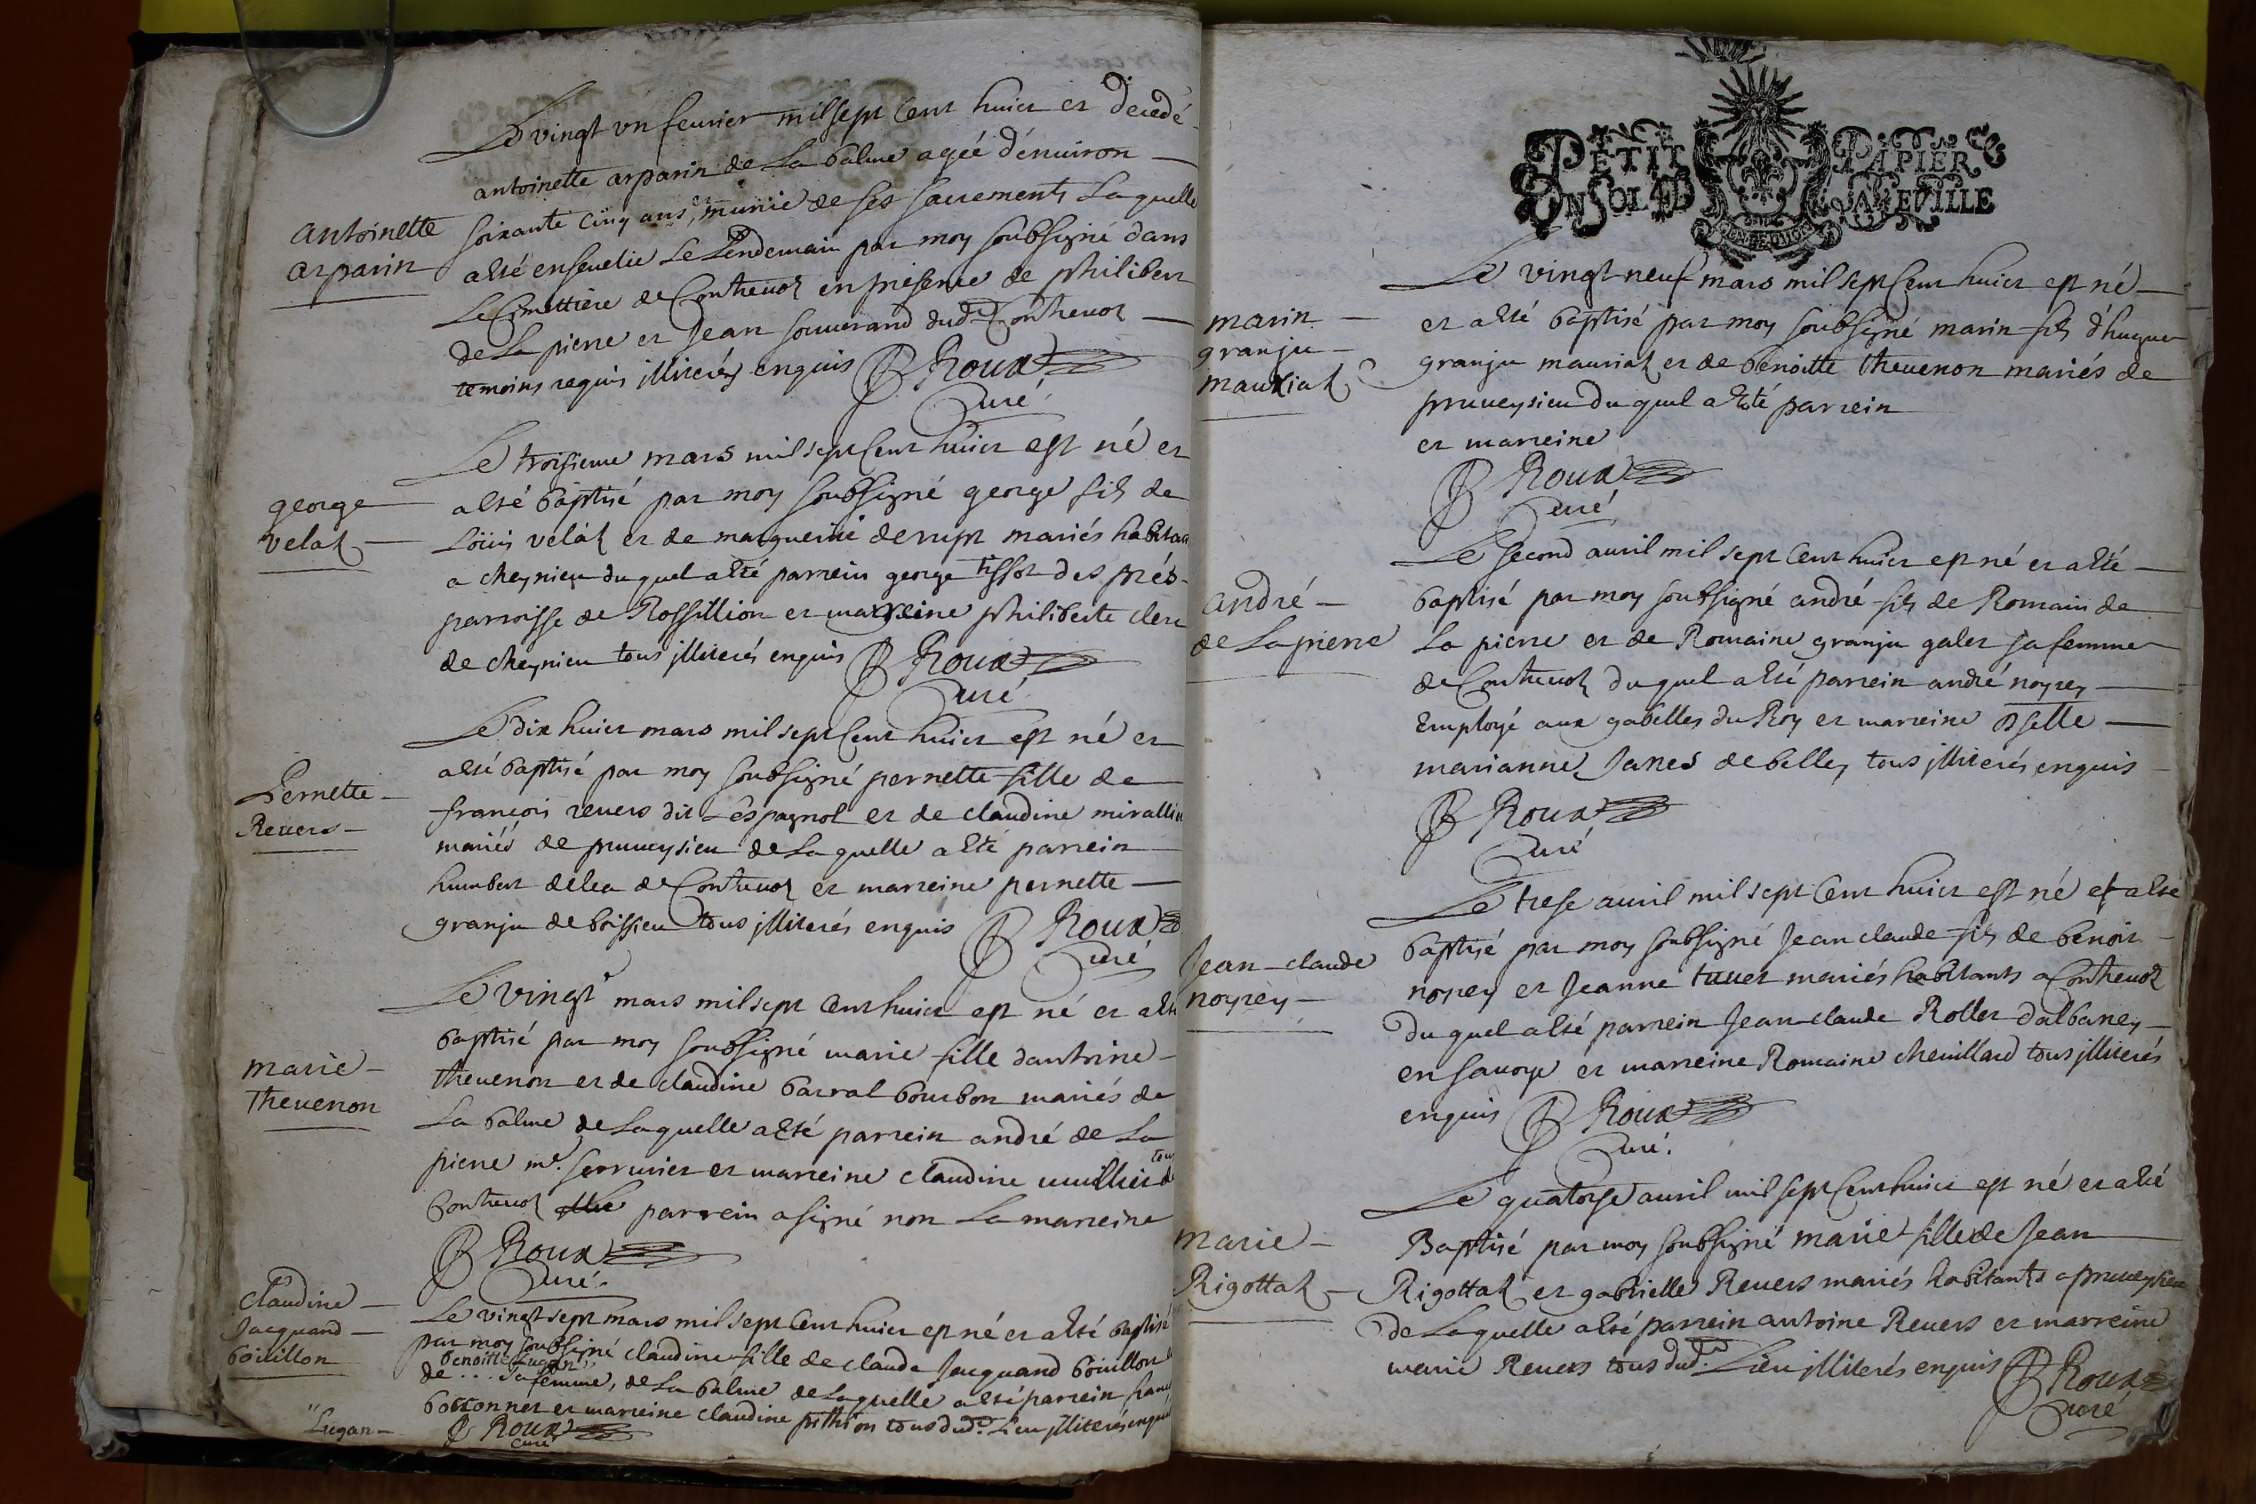 Le vingt vn feurier mil sept Cent huict et decedé
antoinette arparin de La balme agéé d'enuiron
antoinette
arparin
soixante cinq ans, munie de ses sacrements Laquelle
a esté enseuelie Le Lendemain par moy soubsigné dans
Le Cimettiere de Contreuoz en presence de philibert
de La pierre et Jean souuerand dud. Contreuoz
temoins requis jlliterés enquis B Roux
Curé
george
velaz
Le troisieme mars mil sept Cent huict est né et
a esté baptisé par moy soubsigné george fils de
Loüis veláz et de marguerite derupt mariés habitans
a cheynieu du quel a esté parrein george tissot des prés
parroisse de Rossillion et marreine philiberte clerc
de cheynieu tous jlliterés enquis B Roux
Curé
Pernette
Reuers
Le dix huict mars mil sept Cent huict est né et
a esté baptisé par moy soubsigné pernette fille de
françois reuers dit L'espagnol et de claudine mirallier
mariés de prueysieu de Laquelle a esté parrein
humbert delea de Contreuoz et marreine pernette
granju de boissieu tous jlliterés enquis B Roux
Curé
marie
Theuenon
Le vingt mars mil sept Cent huict est né et a esté
baptisé par moy soubsigné marie fille dantoine
theuenon et de claudine barral bourbon mariés de
La balme de Laquelle a esté parrein andré de La
pierre me. serrurier et marreine claudine tous
Contreuoz parrein a signé non La marreine
B Roux
Curé
claudine
Jacquand
boüillon
Le vingt sept mars mil sept Cent huict est né et a esté baptisé
par moy soubsigné claudine fille de claude Jacquand boüillon
benoitte Lugan
de ... sa femme, de La balme de Laquelle a esté parrein
bottonnet et marreine claudine pithion tous dud. Lieu jlliterés enquis
Lugan
B Roux
Curé
PETIT PAPIER
UN SOL 4 D LA FEUILLE
marin
granju
mauriaz
Le vingt neuf mars mil sept Cent huict est né
et a esté baptisé par moy soubsigné marin fils d'hugue
granju mauriaz et de benoitte theuenon mariés de
prueysieu du quel a esté parrein
et marreine
B Roux
Curé
andré
de La pierre
Le second auril mil sept Cent huict est né et a esté
baptisé par moy soubsigné andré fils de Romain de
La pierre et de Romaine granju galet sa femme
de Contreuoz du quel a esté parrein andré noyrey
Employé aux gabelles du Roy et marreine dselle
marianne Janes de belley tous jlliterés enquis
B Roux
Curé
Jean claude
noyrey
Le trese auril mil sept Cent huict est né et a esté
baptisé par moy soubsigné Jean claude fils de benoit
noyrey et Jeanne tuuet mariés habitants a Contreuoz
du quel a esté parrein Jean claude Rollet dalbaney
en sauoye et marreine Romaine cheuillard tous jlliterés
enquis B Roux
Curé.
marie
Rigottaz
Le quatorse auril mil sept Cent huict est né et a esté
Baptisé par moy soubsigné marie fille de Jean
Rigottaz et gabrielle Reuers mariés habitants a prueysieu
de Laquelle a esté parrein antoine Reuers et marreine
marie Reuers tous dud. Lieu jlliterés enquis B Roux
Curé